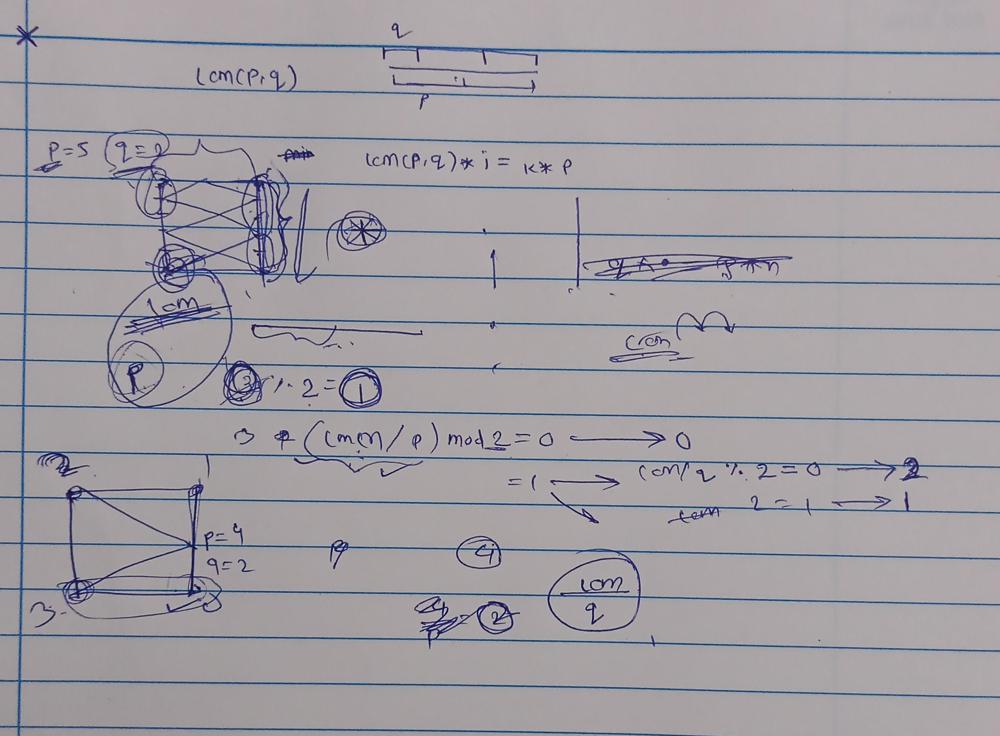 q
lcm(p,q)
p
p=5 q=2
lcm(p,q)*i = k*p
lcm
p
% 2 = 1
(lcm / p) mod 2 = 0 → 0
= 1 → lcm/q % 2 = 0 → 2
2 = 1 → 1
2
1
p=4
q=2
p
4
3
lcm
q
2